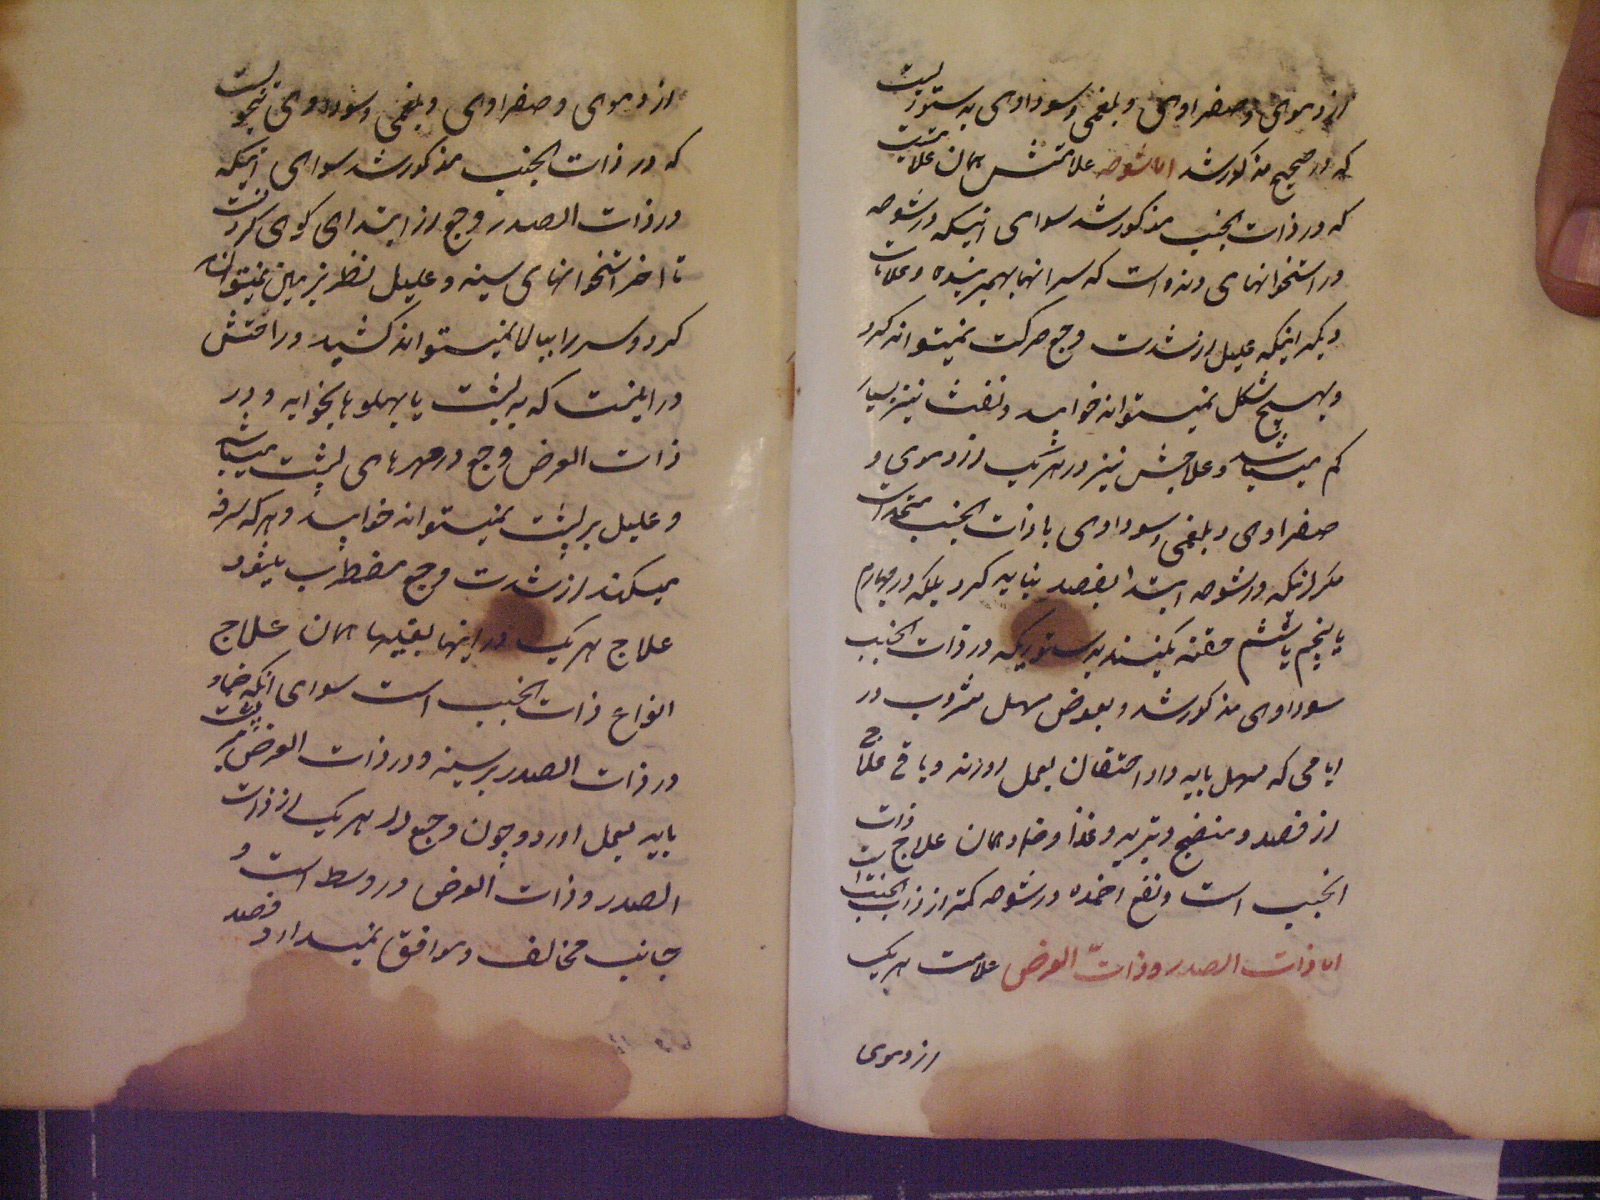 از دموی و صفراوی و بلغمی و سوداوی بدستوریست
که در صحیح مذکور شد اما شوصه علامتش همان علامتیست
که در ذات الجنب مذکور شد سوای اینکه در شوصه
در استخوانهای دنده است که سر آنها بهم رسیده و علامات
دیگر اینکه علیل از شدت وجع حرکت نمیتواند کرد
و بهیچ شکل نمیتواند خوابید و نفث نیز بسیار
کم میباشد و علاجش نیز در هر یک از دموی و
صفراوی و بلغمی و سوداوی با ذات الجنب متحد است
مگر اینکه در شوصه ابتدا بفصد نباید کرد بلکه در چهارم
یا پنجم یا ششم حقنه بکنند بدستوریکه در ذات الجنب
سوداوی مذکور شد و بعوض مسهل مشروب در
ایامی که مسهل باید داد احتقان بعمل اورند و باقی علاج
از فصد و منضج و تبرید و غذا و ضماد همان علاج ذات
الجنب است و نفع اضمده در شوصه کمتر از ذات الجنب است
اما ذات الصدر و ذات العرض علامت هر یک
از دموی
از دموی و صفراوی و بلغمی و سوداوی بنحویست
که در ذات الجنب مذکور شد سوای اینکه
در ذات الصدر وجع از ابتدای کوی کردنست
تا اخر استخوانهای سینه و علیل نظر بزمین نمیتواند
کرد و سر را ببالا نمیتواند کشید و راحتش
در اینست که به پشت یا پهلوها بخوابد و در
ذات العرض وجع در مهرهای پشت میباشد
و علیل بر پشت نمیتواند خوابید و هر که سرفه
میکند از شدت وجع مضطرب میشود
علاج هر یک در اینها بقیها همان علاج
انواع ذات الجنب است سوای انکه ضماد
در ذات الصدر بر سینه و در ذات العرض بر پشت
باید بعمل اورد و چون وجع در هر یک از ذات
الصدر و ذات العرض در وسط است و
جانب مخالف و موافق نمیدارد فصد